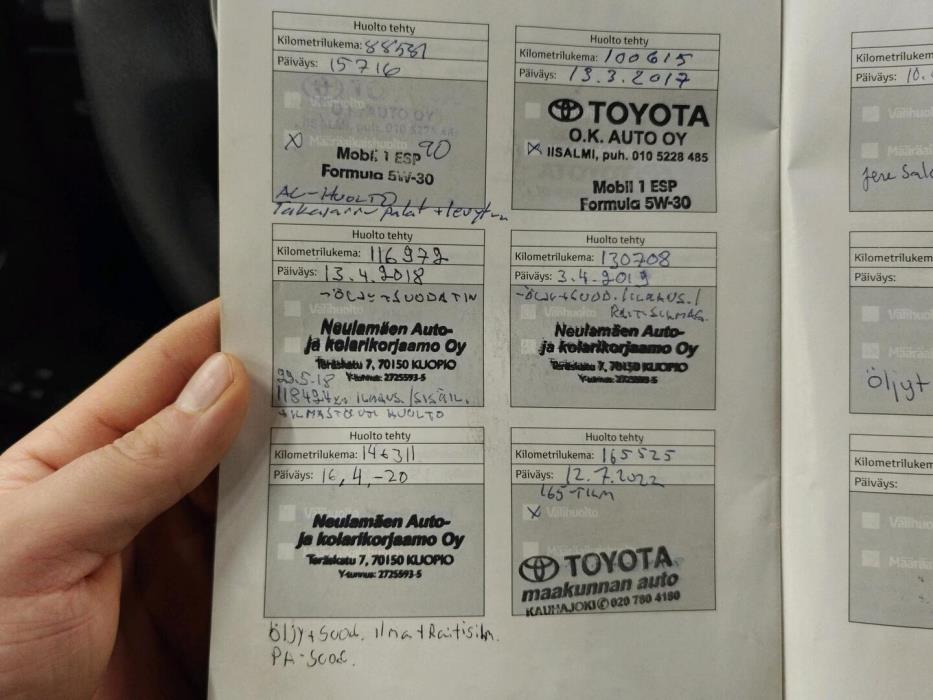 Huolto tehty
Kilometrilukema: 88581
Päiväys: 15716
Välihuolto
Määräaikaishuolto 90
Mobil 1 ESP
Formula 5W-30
AC-HUOLTO
Takajarru palat + levyt
Huolto tehty
Kilometrilukema: 100615
Päiväys: 13.3.2017
TOYOTA
O.K. AUTO OY
IISALMI, puh. 010 5228 485
Mobil 1 ESP
Formula 5W-30
Huolto tehty
Kilometrilukema: 116972
Päiväys: 13.4.2018
-ÖLJY+SUODATIN
Neulamäen Auto-
ja kolarikorjaamo Oy
Teräskatu 7, 70150 KUOPIO
Y-tunnus: 2725593-5
118424 km ILMAUS./SISÄIL.
+ILMASTOINTI HUOLTO
Huolto tehty
Kilometrilukema: 130708
Päiväys: 3.4.2019
-ÖLJY+SUOD./ILMAUS./
RAITISILMAS.
Välihuolto
Neulamäen Auto-
ja kolarikorjaamo Oy
Teräskatu 7, 70150 KUOPIO
Y-tunnus: 2725593-5
Huolto tehty
Kilometrilukema: 146311
Päiväys: 16,4,-20
Välihuolto
Neulamäen Auto-
ja kolarikorjaamo Oy
Teräskatu 7, 70150 KUOPIO
Y-tunnus: 2725593-5
Öljy+Suod. ilma+Raitisilm.
PA-Suod.
Huolto tehty
Kilometrilukema: 165525
Päiväys: 12.7.2022
165-TKM
Välihuolto
TOYOTA
maakunnan auto
KAUHAJOKI 020 780 4180
Kilometrilukem
Päiväys: 10.
Välihuo
Määräai
Jere Salo
Kilometrilukem
Päiväys:
Välihuo
Määräa
Öljyt
Kilometrilukem
Päiväys:
Välihuo
Määräa